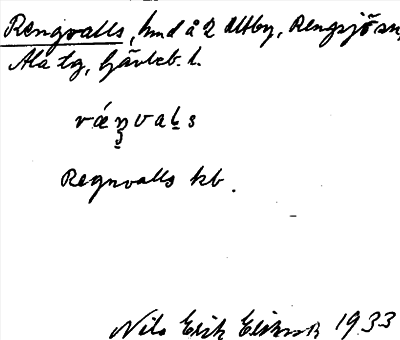 Rengvalls, hmd å 2 Altby, Rengsjö sn,
Ala tg, Gävleb. l.
rǽŋvaḷs
Regnvalls kb.
Nils Erik Eriksson 1933